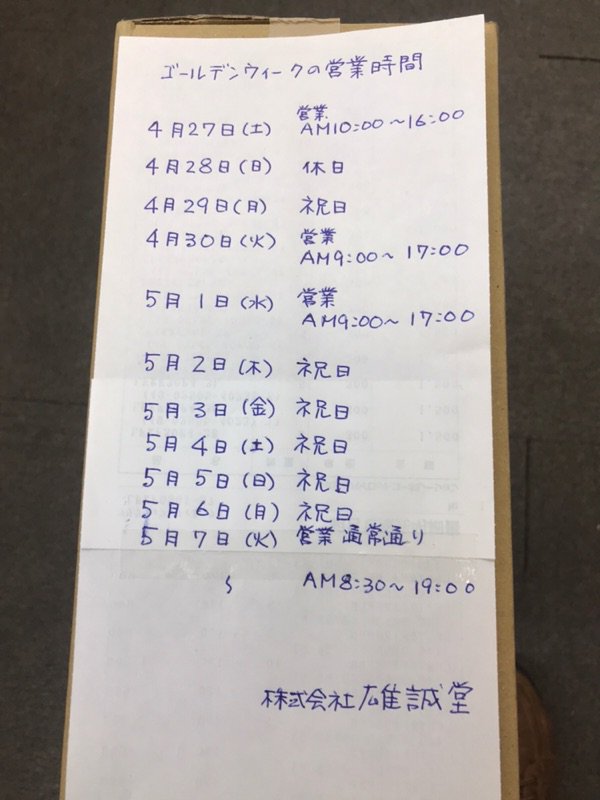 ゴールデンウィークの営業時間
4月27日(土) 営業 AM10:00〜16:00
4月28日(日) 休日
4月29日(月) 祝日
4月30日(火) 営業 AM9:00〜17:00
5月1日(水) 営業 AM9:00〜17:00
5月2日(木) 祝日
5月3日(金) 祝日
5月4日(土) 祝日
5月5日(日) 祝日
5月6日(月) 祝日
5月7日(火) 営業 通常通り
〜 AM8:30〜19:00
株式会社雄誠堂